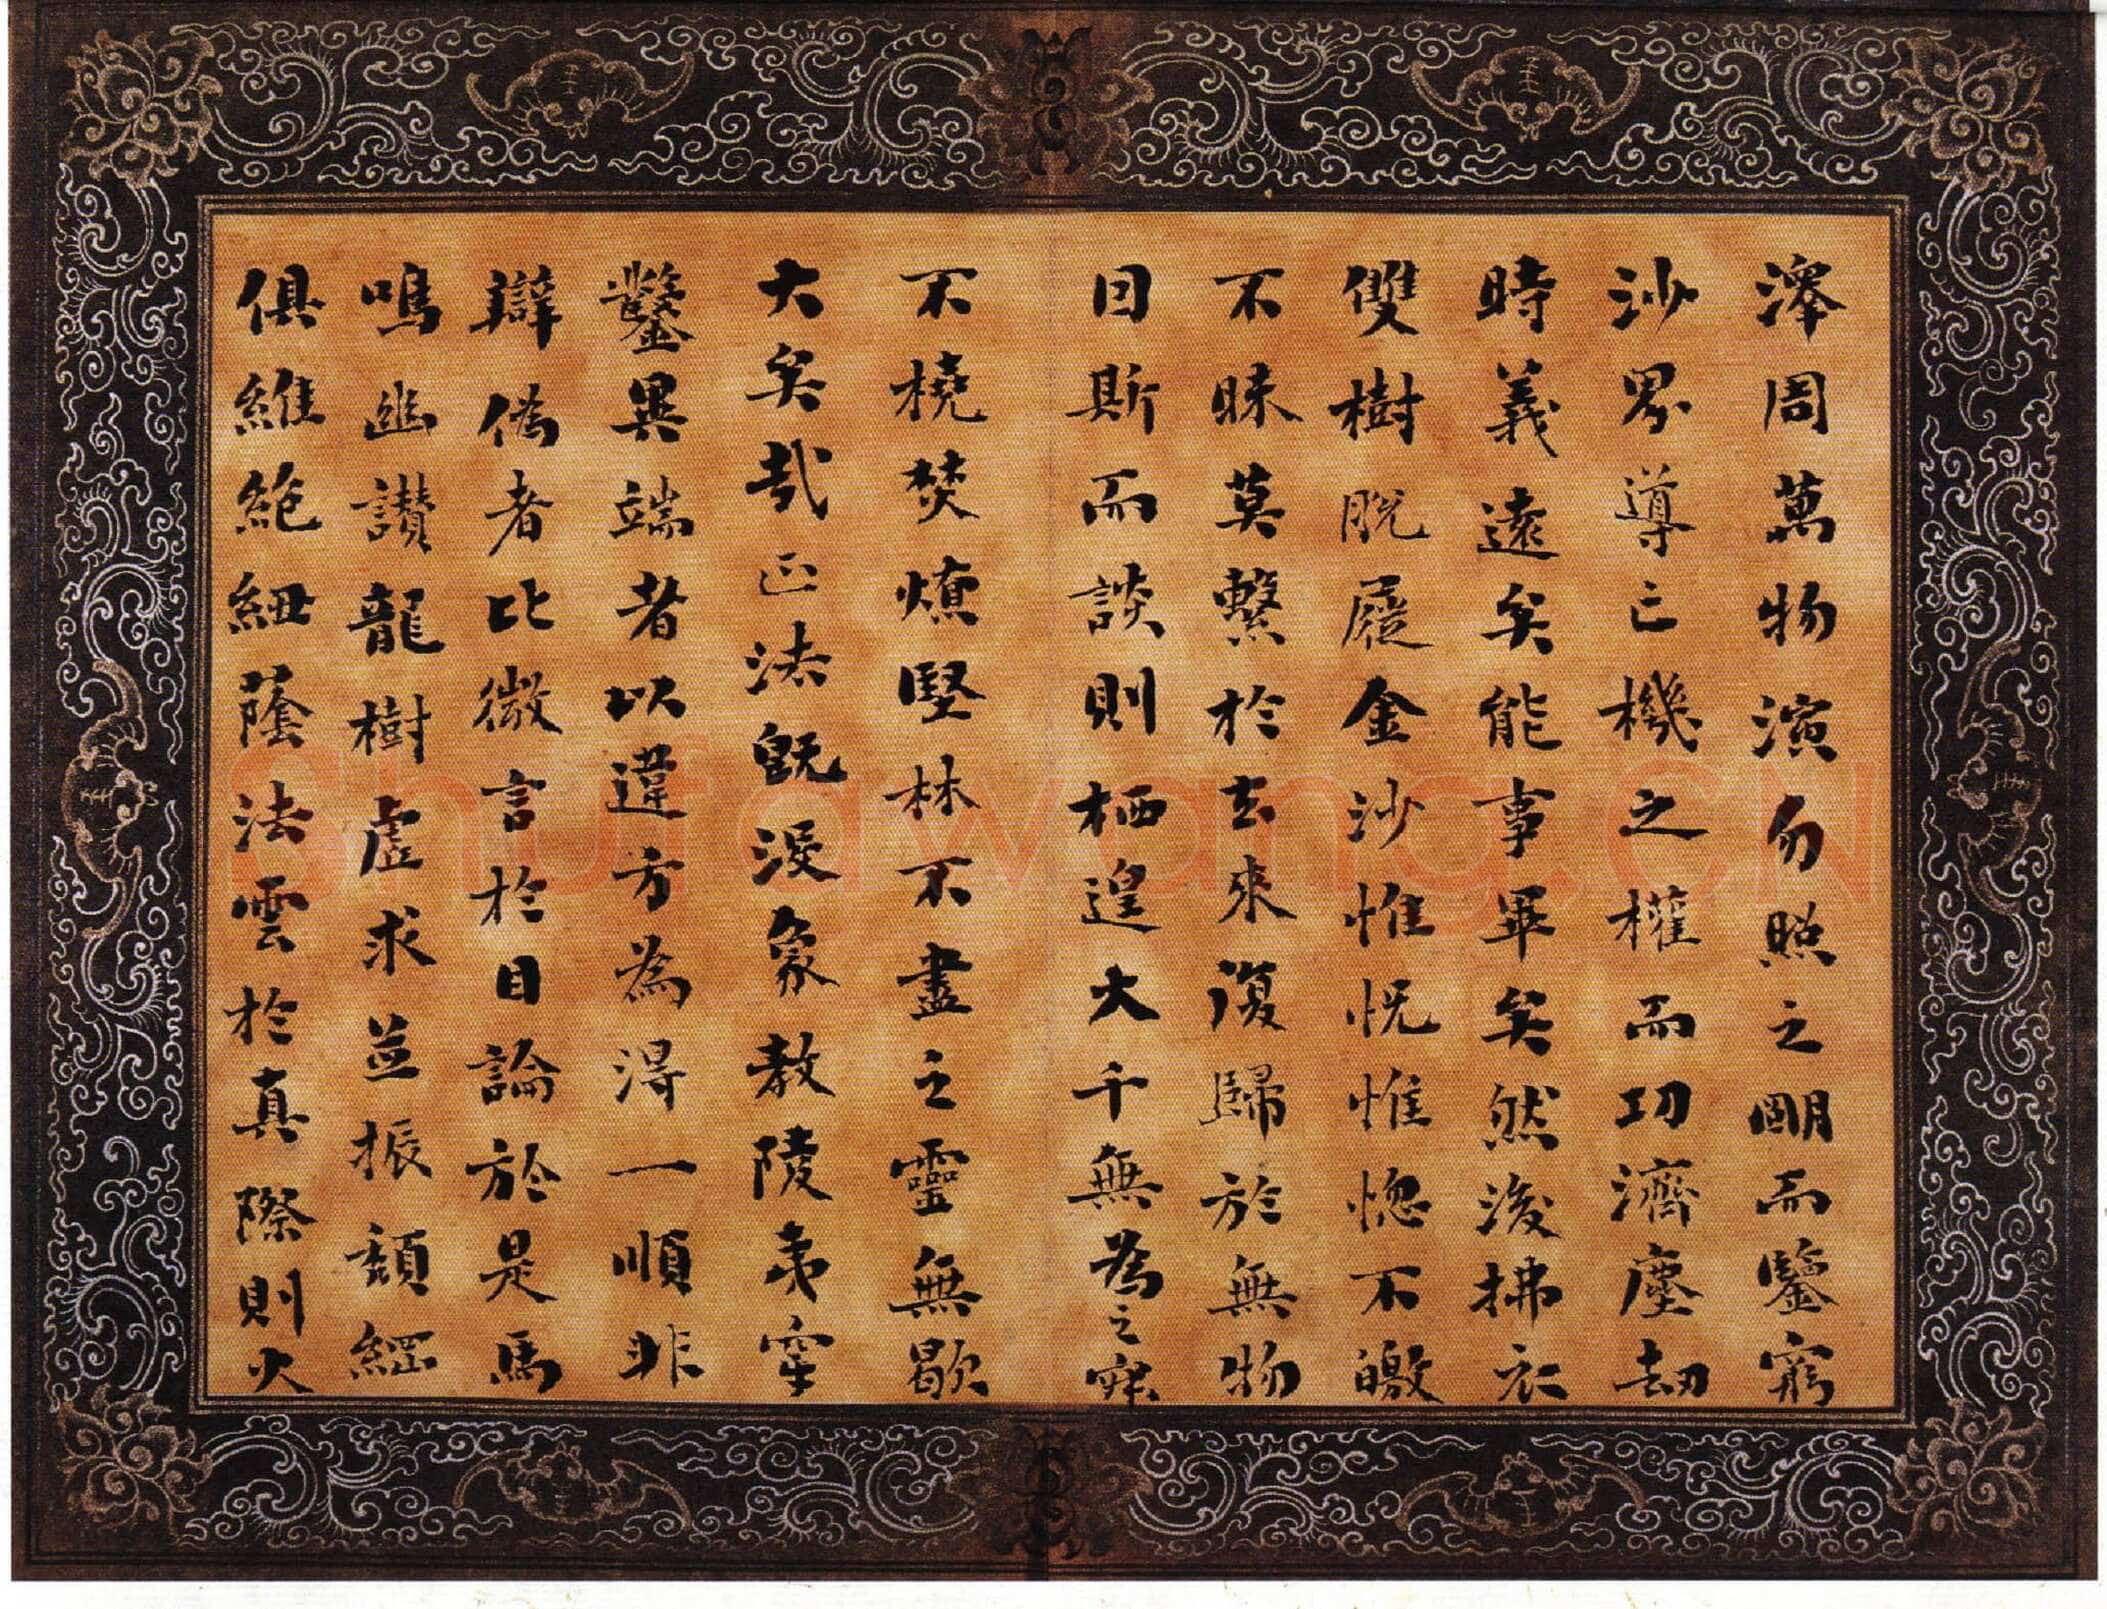 澤周萬物演勿照之明而鑒窮
沙界導亡機之權而功濟塵劫
時義遠矣能事畢矣然後拂衣
雙樹脫屣金沙惟怳惟惚不皦
不昧莫繫於去來復歸於無物
因斯而談則栖遑大千無為之寂
不橈焚燎堅林不盡之靈無歇
大矣哉正法既沒象教陵夷穿
鑿異端者以違方為得一順非
辯偽者比微言於目論於是馬
鳴幽讚龍樹虛求並振頹綱
俱維絕紐蔭法雲於真際則火
Shufawang.CN